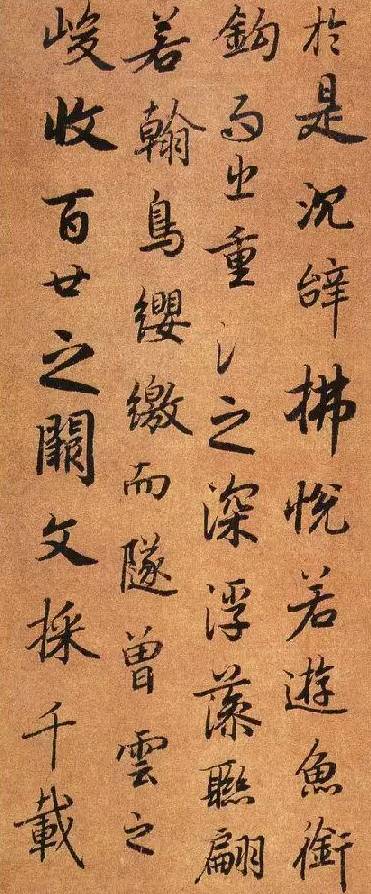 於是沉辝拂悅若遊魚銜
鉤而出重之深浮藻聯翩
若翰鳥纓繳而隧曾雲之
峻收百廿之闕文採千載